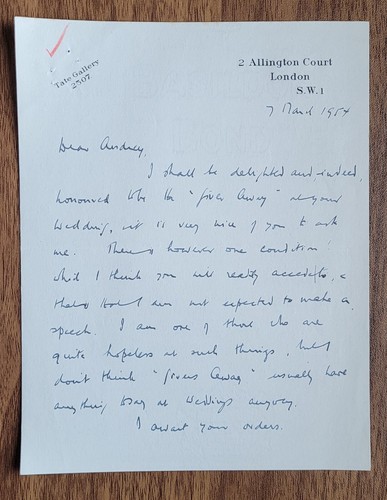 Tate Gallery
2507
2 Allington Court
London
S.W.1
7 March 1954
Dear Audrey,
I shall be delighted and, indeed,
honoured to be the "giver away" at your
wedding, it is very nice of you to ask
me. There is however one condition!
which I think you will readily accede to, &
that is that I am not expected to make a
speech. I am one of those who are
quite hopeless at such things, but I
don't think "givers away" usually have
anything to say at weddings anyway.
I await your orders.